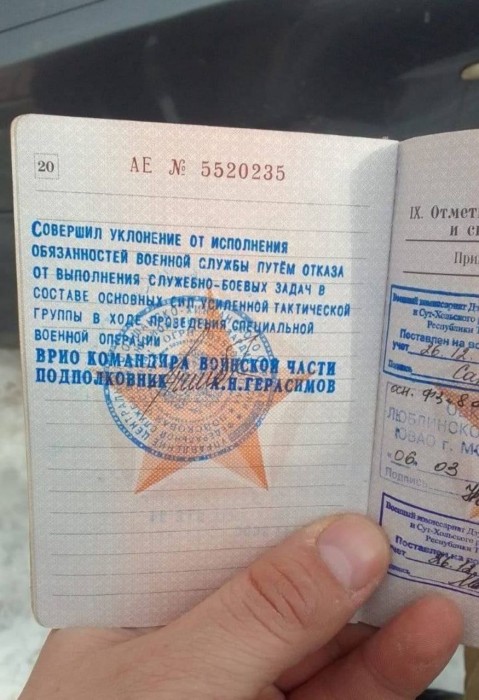 20
АЕ № 5520235
СОВЕРШИЛ УКЛОНЕНИЕ ОТ ИСПОЛНЕНИЯ
ОБЯЗАННОСТЕЙ ВОЕННОЙ СЛУЖБЫ ПУТЁМ ОТКАЗА
ОТ ВЫПОЛНЕНИЯ СЛУЖЕБНО-БОЕВЫХ ЗАДАЧ В
СОСТАВЕ ОСНОВНЫХ СИЛ УСИЛЕННОЙ ТАКТИЧЕСКОЙ
ГРУППЫ В ХОДЕ ПРОВЕДЕНИЯ СПЕЦИАЛЬНОЙ
ВОЕННОЙ ОПЕРАЦИИ
ВРИО КОМАНДИРА ВОИНСКОЙ ЧАСТИ
ПОДПОЛКОВНИК А.Н.ГЕРАСИМОВ
IX. Отмет
и с
При
Военный комиссариат Дз
и Сут-Хольского
Республики Т
Поставлен на во
учет 26.12
Подпись
ЛЮБЛИНСКО
ЮВАО г. М
"06. 03
Подпись
Военный комиссариат Дз
и Сут-Хольского
Республики Т
Поставлен
учет 26.12
Подпись